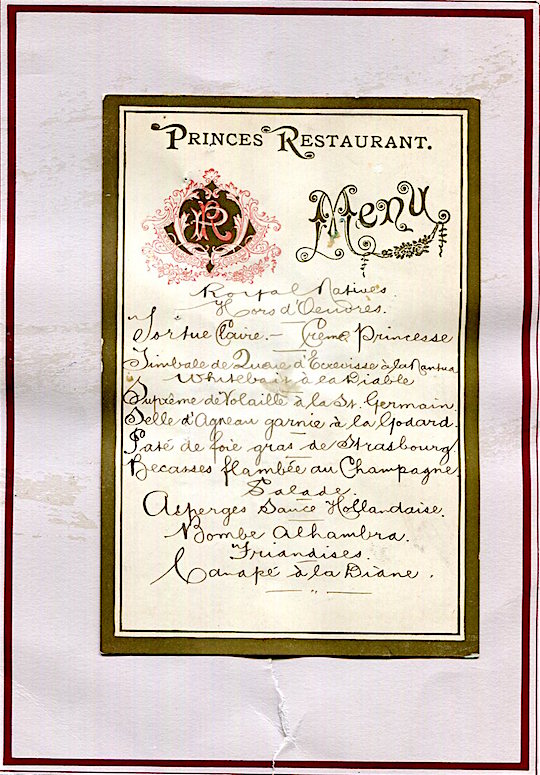 PRINCES RESTAURANT.
R
Menu
Royal Natives
Hors d'Oeuvres.
Tortue Claire. – Crème Princesse
Timbale de Queue d'Ecrevisse à la Nantua
Whitebait à la Diable
Suprême de Volaille à la St. Germain.
Selle d'Agneau garnie à la Godard.
Paté de foie gras de Strasbourg
Becasses flambée au Champagne
Salade.
Asperges Sauce Hollandaise.
Bombe Alhambra.
Friandises.
Canapé à la Diane.